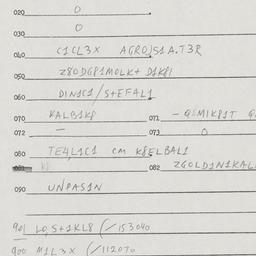 020 0
030 0
040 C1CL3X AGROJS1A.T3R
050 Z8ODG81MOLK+ D1K8I
060 DIN1C1/S+EFAL1
070 KALB1K8 071 - G8MIK81T
072 - 073 0
080 TE4L1C1 CM K8ELBAL1
082 ZGOLD1N1KAL
090 UNPAS1N
901 LO,S+1KL8 (/153040
900 M1L3X (/112070